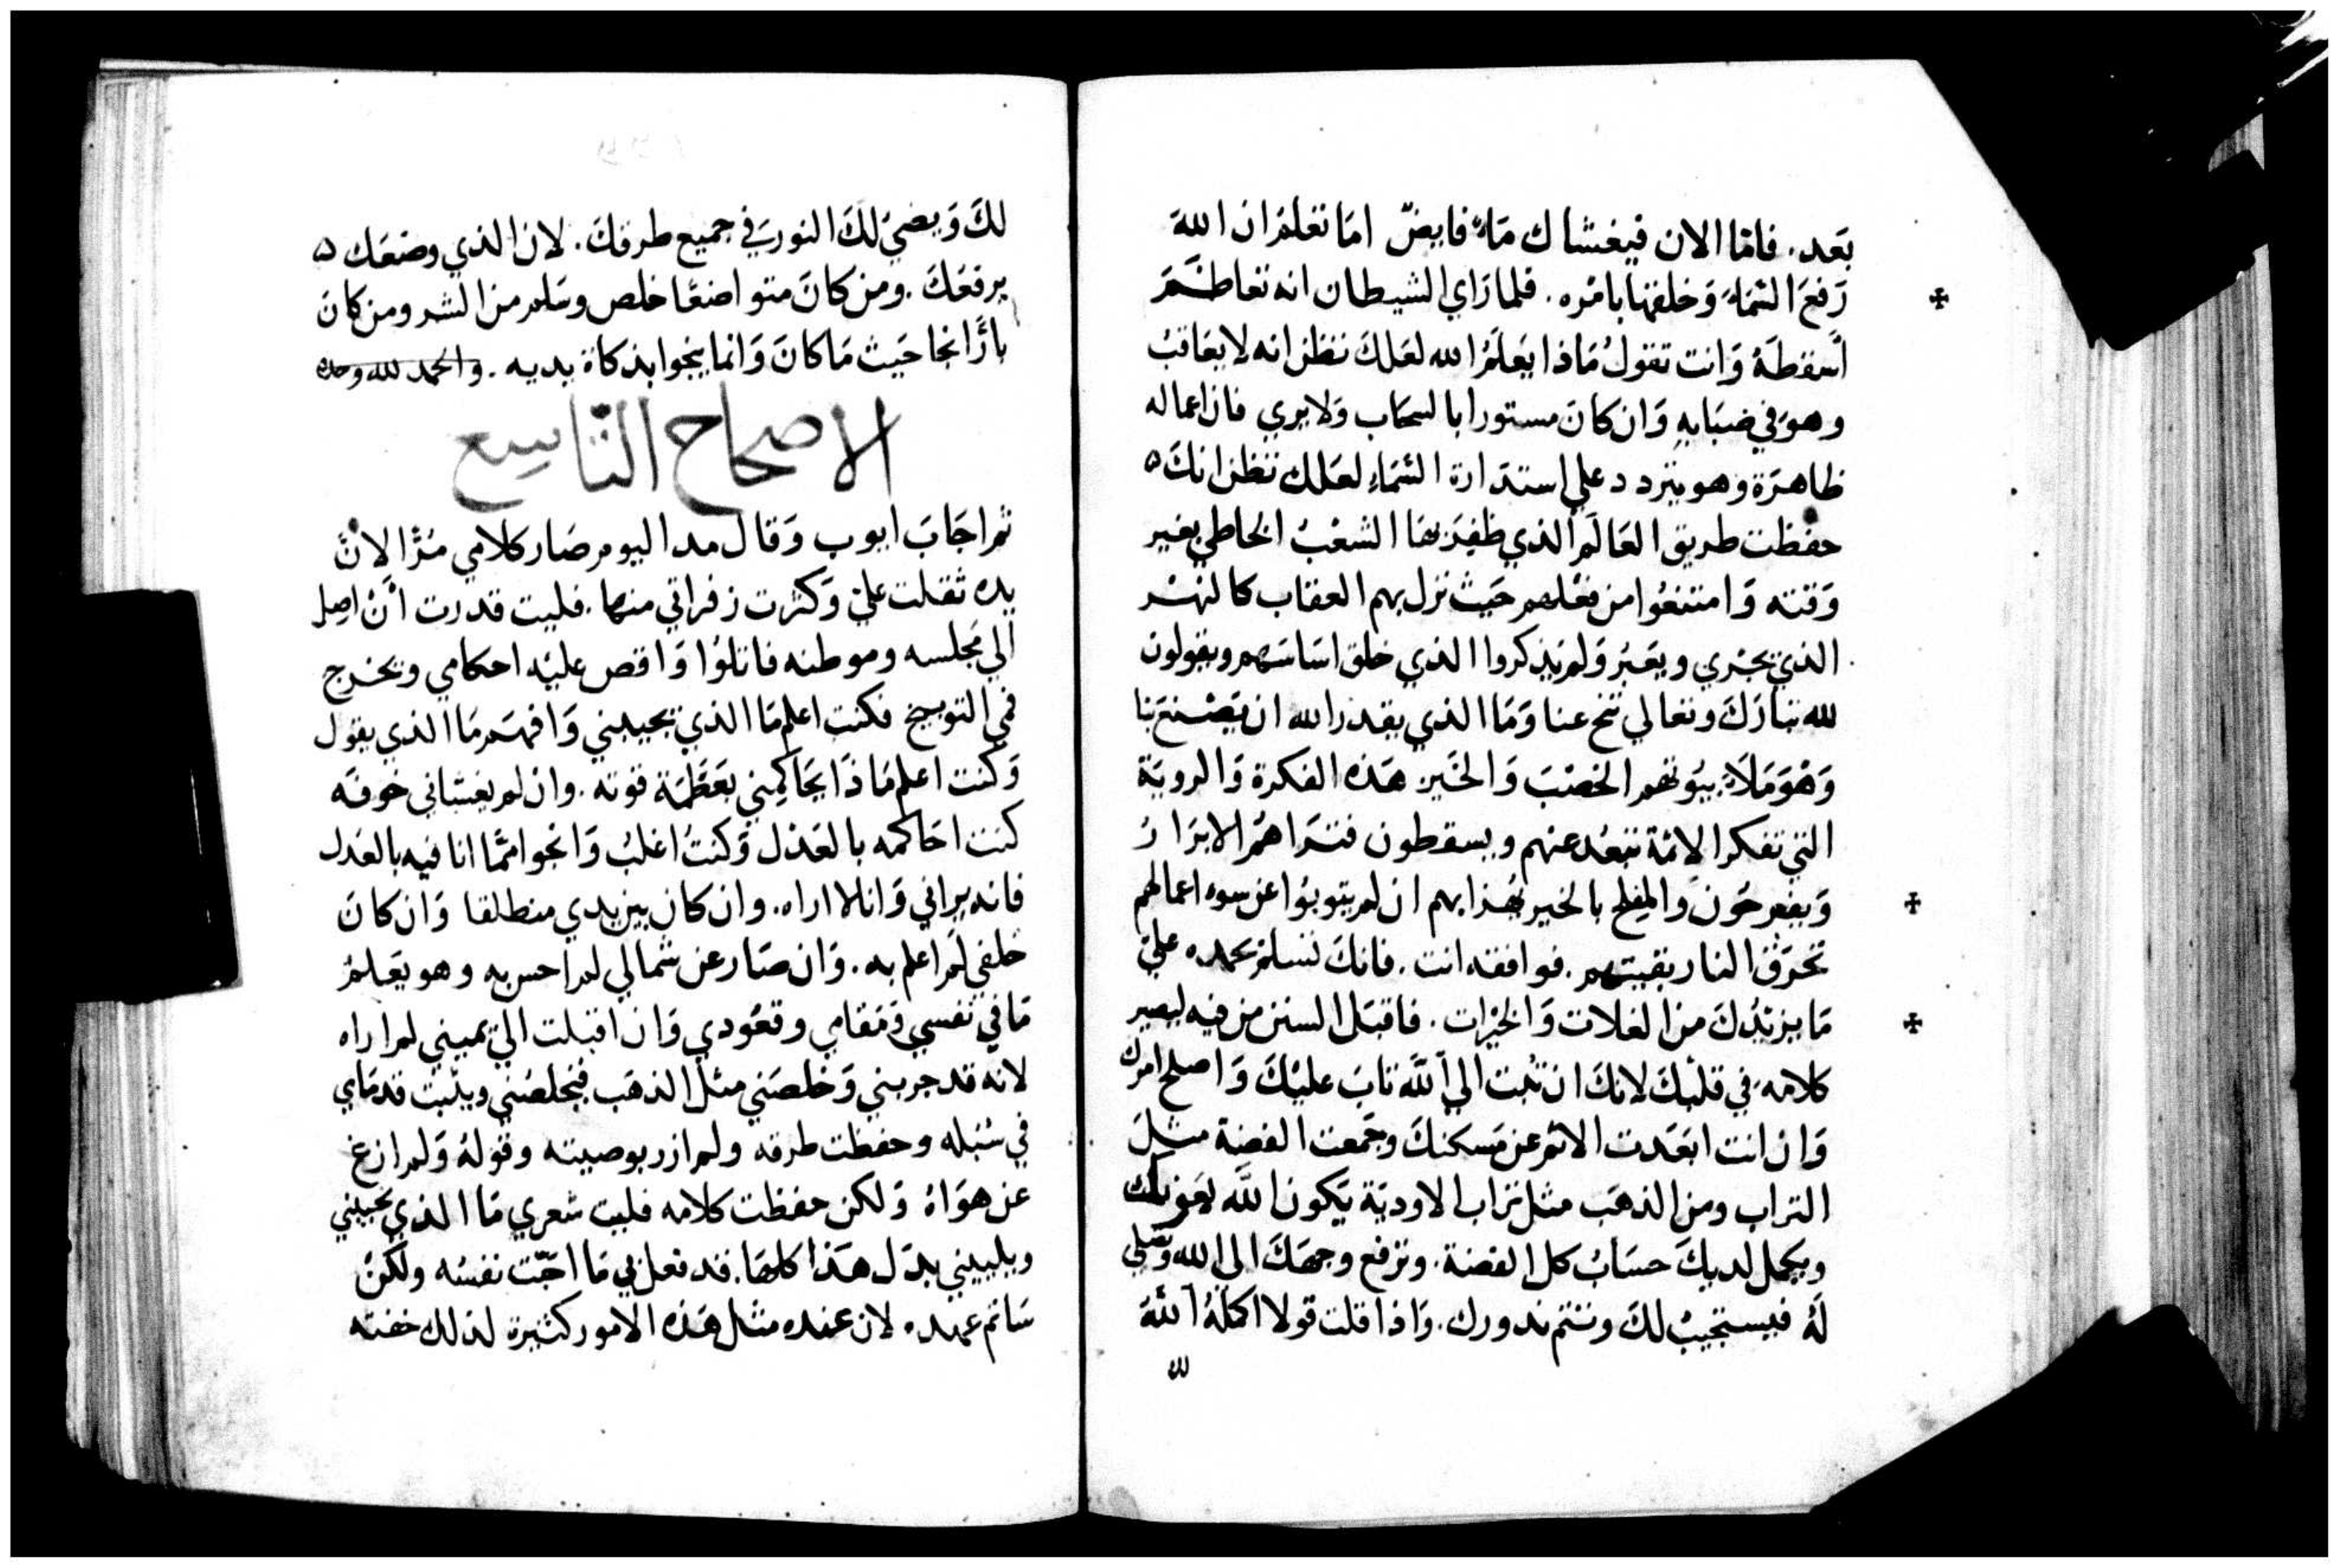 بَعد. فامّا الان فيغشاك مَاءٌ فايضٌ امَا تعْلمْ ان اللهَ
رَفعَ السّمَاءَ وَخلقها بامْره. فلما رَاي الشيطان انه تعاظَمَ
أسقطَهُ وَانت تقولُ مَاذا يعَلَمُ الله لعَلكَ تظن انه لا يعَاقبُ
وهوَ في ضبَابهِ وَان كانَ مستورا بالسحَاب وَلا يري فان اعماله
ظاهرَة وهو يتردد علي استدَارة السّمَاءِ لعَلك تظن انكَ ه
حفظت طريق العَالَم الذي ظفِرَ بهَا الشعْبُ الخاطي بغير
وَقته وَامتنعُوا من فعْلهم حَيث نزل بهم العقاب كالنهْر
الذي يجْري ويعَبُر وَلم يذكروا الذي خلق اسَاسَهم ويقولون
لله تبارَكَ وتعالي تنح عنا وَمَا الذي يقدر الله ان يَصْنعَ بنا
وَهْوَ مَلَاءَ بيُوتهم الخصْبَ وَالخَير هَذه الفكرة وَالرويَة
التي تفكر الاِثمة تبعُد عنهم ويسقطون فتَراهُمُ الابرَارُ
وَيفرحُون والمِفلح بالخير يهْزا بهم ان لم يتوبُوا عن سوء اعمالهم
تحرَقُ النار بقيتهم. فوافقه انت. فانكَ تسلم بحمده عليَ
مَا يزيْدُكَ من الغلات وَالخيْرات. فاقبَل السنن من فيه ليصير
كلامَه في قلبْكَ لانكَ ان تُبت الي اللَّه تابَ عليْكَ وَاصلح امرك
وَان انت ابعَدت الاثم عن مَسكنكَ وجَمعت الفضة مثلَ
التراب ومن الذهَب مثل تراب الاوديَة يَكون اللَّه لعَونك
ويكمل لديكَ حسَابُ كل الفضة. وترفع وجهَكَ الي الله وتصلي
لَهُ فيستجيبُ لكَ وتتم ندورك. وَاذا قلت قولا اكمَلهُ اللَّهُ
لك
لكَ وَيضيْ لكَ النورَ في جميع طرقكَ. لان الذي وضعَك ه
يرفعَكَ. ومن كانَ متواضعًا خلص وسَلم من الشر ومن كانَ
بارًّا نجا حَيث مَا كانَ وَانما ينجوا بذكاة يديه. والحمد لله وحده
الاصحاح التّاسِع
ثم اجَابَ ايوب وَقال مدا اليوم صَار كلامي مُرًّا لانَّ
يده ثقلت عليّ وَكثرت زفراتي منها. فليت قدرت أنْ اصل
الي مجلسه وموطنه فاتلوُا وَاقص عليْه احكامي وتخرج
فمي التوبيخ فكنت اعلم مَا الذي يجيبني وَافهَم مَا الذي يقول
وَكنت اعلم مَاذَا يحَاكِمِني بعَظَمَة قوته. وان لم يغشاني خوفه
كنت احَاكمه بالعَدْل وَكنتُ اغلبُ وَانجوا ممَّا انا فيه بالعَدل
فانه يراني وَانا لا اراه. وان كان بين يدي منطلقا وَان كانَ
خلفي لَم اعلم به. وَان صَار عن شمالي لم احس به وهو يَعَلمُ
مَا في نفسي وَمَقامي وقعُودي وَان اقبلت الي يميني لم اراه
لانه قد جربني وَخلصَني مثل الذهَب فيخلصُني ويثَبت قدمَاي
في سُبله وحفظت طرقه ولم ازر بوصيته وقوْلهُ وَلم ازغ
عن هوَاهُ وَلكن حفظت كلامه فليت شعري مَا الذي يجيبني
ويلبيني بدَل هَذا كلهَا. قد فعل بي مَا احَبّت نفسُه ولكنْ
سَاتم عهده لان عنده مثل هَذه الامور كثيرة لذلك خفته